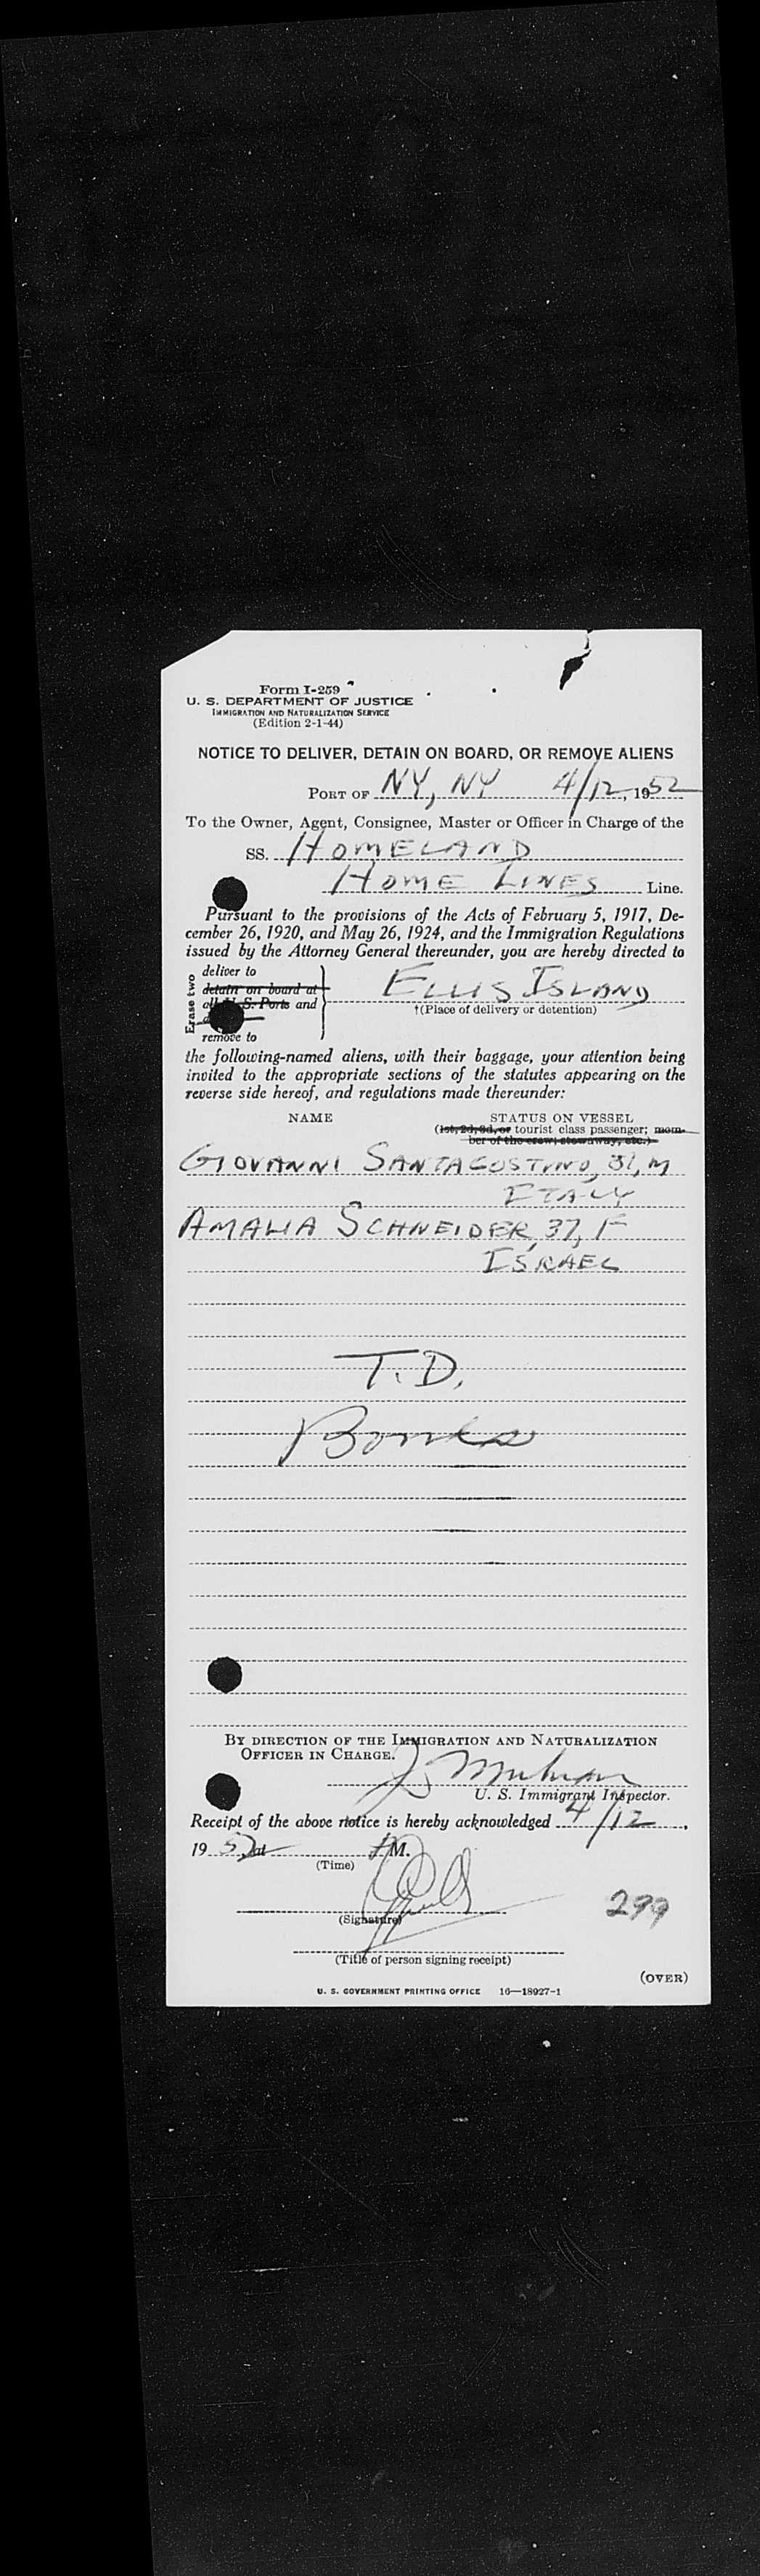 Form I-259
U. S. DEPARTMENT OF JUSTICE
IMMIGRATION AND NATURALIZATION SERVICE
(Edition 2-1-44)
NOTICE TO DELIVER, DETAIN ON BOARD, OR REMOVE ALIENS
PORT OF NY, NY 4/12, 1952
To the Owner, Agent, Consignee, Master or Officer in Charge of the
SS. HOMELAND
HOME LINES Line.
Pursuant to the provisions of the Acts of February 5, 1917, De-
cember 26, 1920, and May 26, 1924, and the Immigration Regulations
issued by the Attorney General thereunder, you are hereby directed to
Erase two
deliver to
detain on board at
all U. S. Ports and
remove to
ELLIS ISLAND
†(Place of delivery or detention)
the following-named aliens, with their baggage, your attention being
invited to the appropriate sections of the statutes appearing on the
reverse side hereof, and regulations made thereunder:
NAME STATUS ON VESSEL
(1st, 2d, 3d, or tourist class passenger; mem-
ber of the crew; stowaway, etc.)
GIOVANNI SANTAGOSTINO, 31, M
ITALY
AMALIA SCHNEIDER, 37, F
ISRAEL
T. D.
BY DIRECTION OF THE IMMIGRATION AND NATURALIZATION
OFFICER IN CHARGE.
U. S. Immigrant Inspector.
Receipt of the above notice is hereby acknowledged 4/12,
1952 at M.
(Time)
299
(Signature)
(Title of person signing receipt)
(OVER)
U. S. GOVERNMENT PRINTING OFFICE 16—18927-1